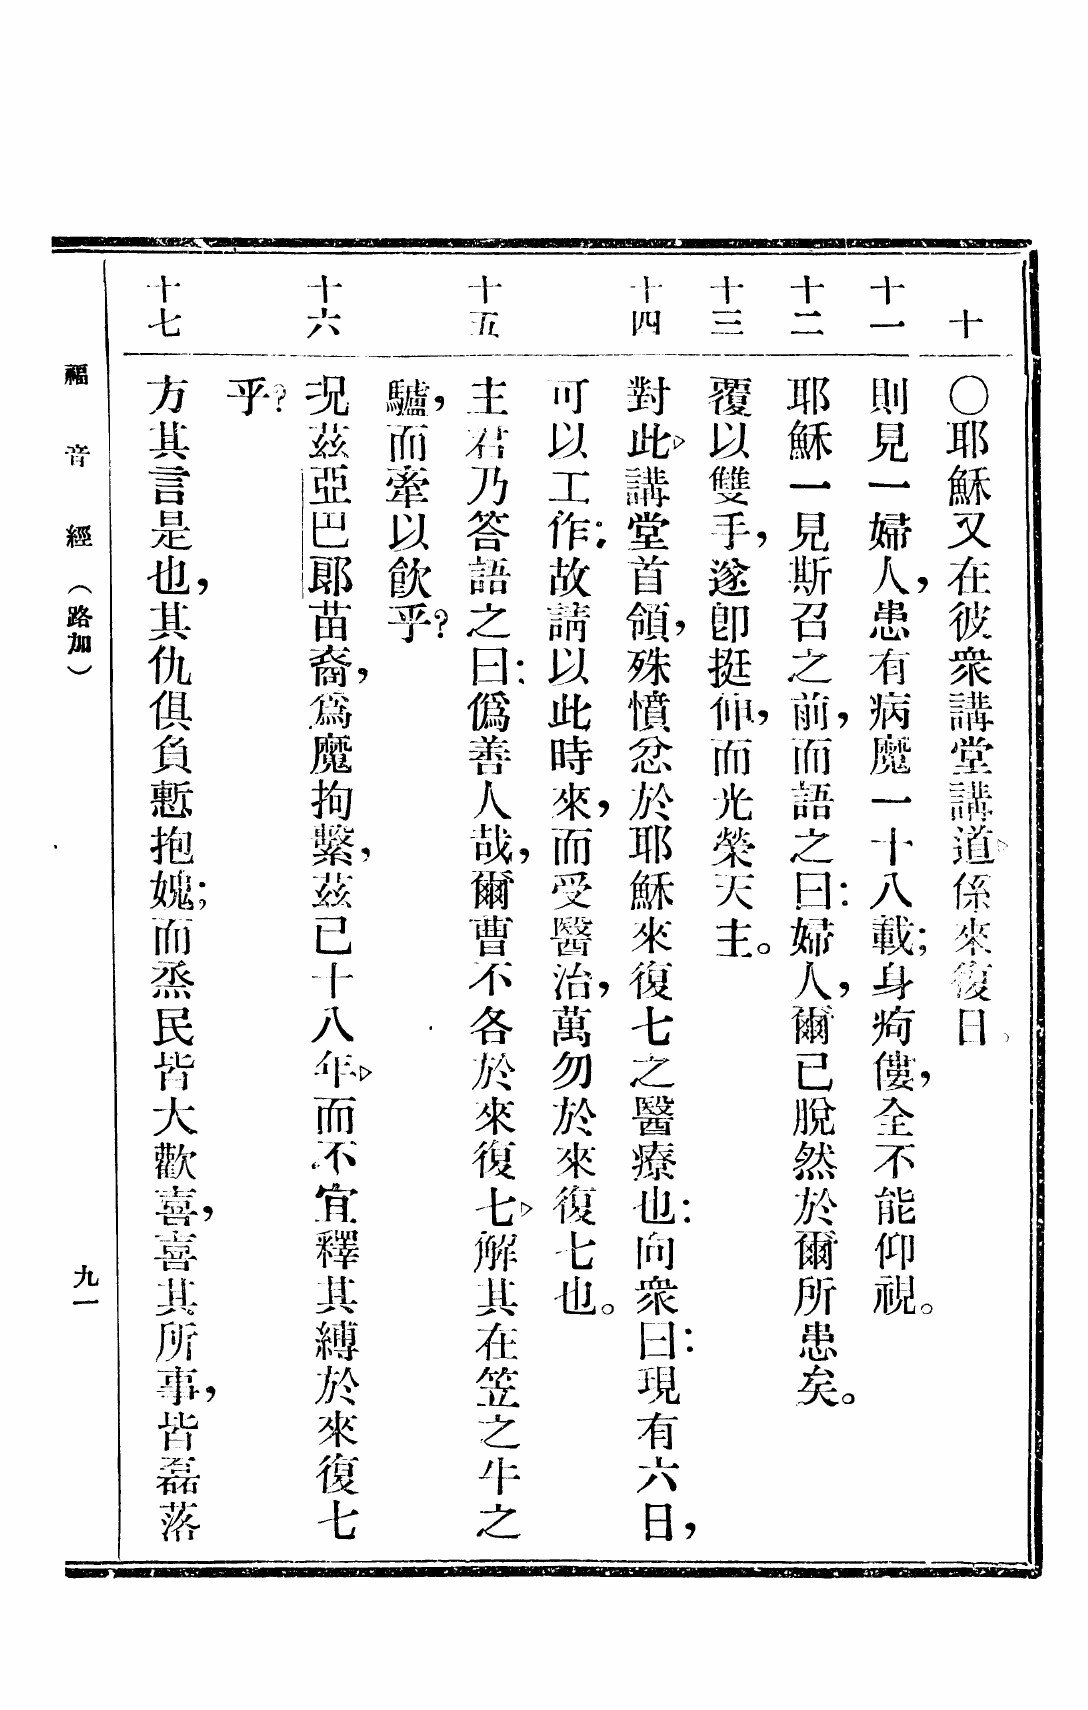 十 ○耶穌又在彼衆講堂講道▷係來復日、
十一 則見一婦人，患有病魔一十八載；身痀僂，全不能仰視。
十二 耶穌一見斯召之前，而語之曰：婦人，爾已脫然於爾所患矣。
十三 覆以雙手，遂卽挺伸，而光榮天主。
十四 對此▷講堂首領，殊憤忿於耶穌來復七之醫療也：向衆曰：現有六日，
可以工作：故請以此時來，而受醫治，萬勿於來復七也。
十五 主君乃答語之曰：僞善人哉，爾曹不各於來復七▷解其在笠之牛之
驢，而牽以飮乎？
十六 况茲亞巴郞苗裔，爲魔拘繫，茲已十八年▷而不宜釋其縛於來復七
乎？
十七 方其言是也，其仇俱負慙抱媿；而烝民皆大歡喜，喜其所事，皆磊落
福音經（路加） 九一